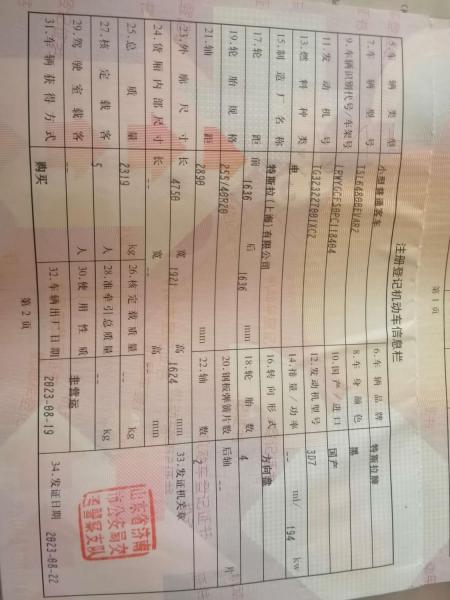 第 1 页
注册登记机动车信息栏
5.车辆类型 小型普通客车 6.车辆品牌 特斯拉牌
7.车辆型号 TSL6480BEVAR2 8.车身颜色 黑
9.车辆识别代号/车架号 10.国产/进口 国产
11.发动机号 TG3232270B1XC2 12.发动机型号 3D7
13.燃料种类 电 14.排量/功率 -- ml/ 194 kw
15.制造厂名称 特斯拉(上海)有限公司 16.转向形式 方向盘
17.轮距 前 1636 后 1636 mm 18.轮胎数 4
19.轮胎规格 255/40R20 20.钢板弹簧片数 后轴 -- 片
21.轴距 2890 mm 22.轴数 2
23.外廓尺寸 长 4750 宽 1921 高 1624 mm 33.发证机关章
24.货厢内部尺寸 长 -- 宽 -- 高 -- mm
25.总质量 2319 kg 26.核定载质量 -- kg
27.核定载客 5 人 28.准牵引总质量 -- kg
29.驾驶室载客 -- 人 30.使用性质 非营运
31.车辆获得方式 购买 32.车辆出厂日期 2023-08-19 34.发证日期 2023-08-22
山东省济南
市公安局交
通警察支队
第 2 页